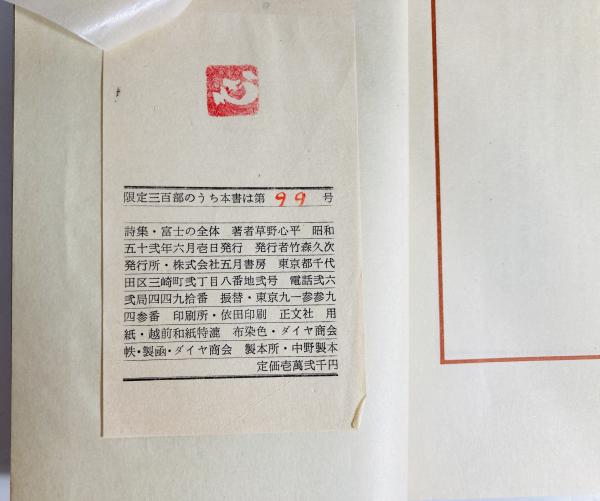 心
限定三百部のうち本書は第 99 号
詩集・富士の全体 著者草野心平 昭和
五十弐年六月壱日発行 発行者竹森久次
発行所・株式会社五月書房 東京都千代
田区三崎町弐丁目八番地弐号 電話弐六
弐局四四九拾番 振替・東京九一参参九
四参番 印刷所・依田印刷 正文社 用
紙・越前和紙特漉 布染色・ダイヤ商会
帙・製函・ダイヤ商会 製本所・中野製本
定価壱萬弐千円